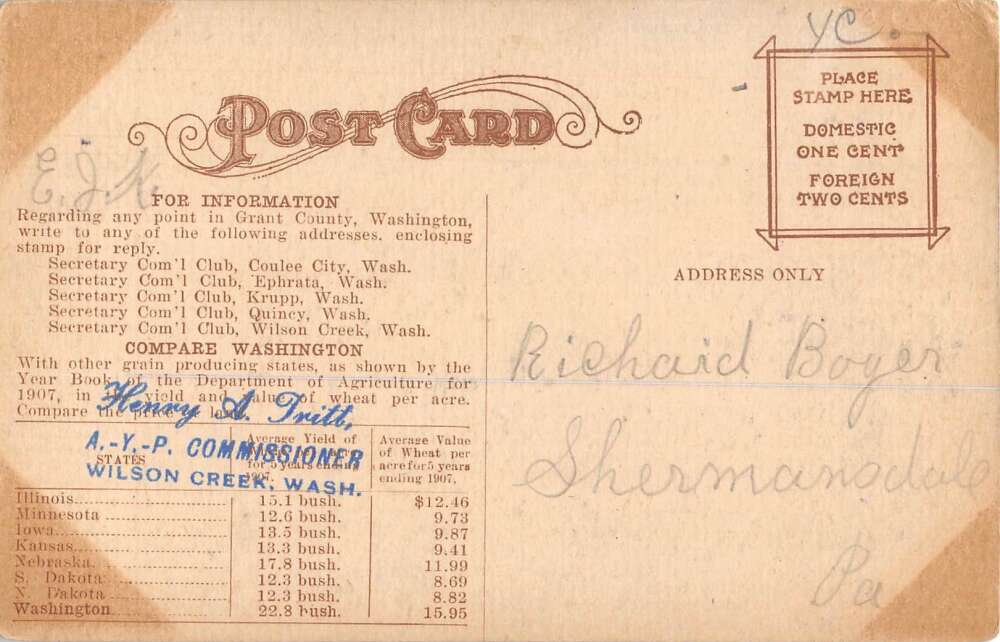 YC.
POST CARD
PLACE
STAMP HERE
DOMESTIC
ONE CENT
FOREIGN
TWO CENTS
E.J.K.
FOR INFORMATION
Regarding any point in Grant County, Washington,
write to any of the following addresses. enclosing
stamp for reply.
Secretary Com'l Club, Coulee City, Wash.
Secretary Com'l Club, Ephrata, Wash.
Secretary Com'l Club, Krupp, Wash.
Secretary Com'l Club, Quincy, Wash.
Secretary Com'l Club, Wilson Creek, Wash.
COMPARE WASHINGTON
With other grain producing states, as shown by the
Year Book of the Department of Agriculture for
1907, in yield and value of wheat per acre.
Compare the price
Henry A. Tritt,
A.-Y.-P. COMMISSIONER
WILSON CREEK, WASH.
STATES
Average Yield of
for 5 years ending
1907.
Average Value
of Wheat per
acre for 5 years
ending 1907.
Illinois 15.1 bush. $12.46
Minnesota 12.6 bush. 9.73
Iowa 13.5 bush. 9.87
Kansas 13.3 bush. 9.41
Nebraska. 17.8 bush. 11.99
S. Dakota 12.3 bush. 8.69
N. Dakota 12.3 bush. 8.82
Washington 22.8 bush. 15.95
ADDRESS ONLY
Richard Boyer
Pa